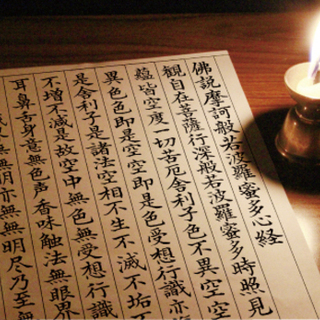 佛説摩訶般若波羅蜜多心経
観自在菩薩行深般若波羅蜜多時照見
蘊皆空度一切苦厄舎利子色不異空空
異色色即是空空即是色受想行識亦
是舎利子是諸法空相不生不滅不垢不
不増不減是故空中無色無受想行識
耳鼻舌身意無色声香味触法無眼界
無無明亦無無明尽乃至無